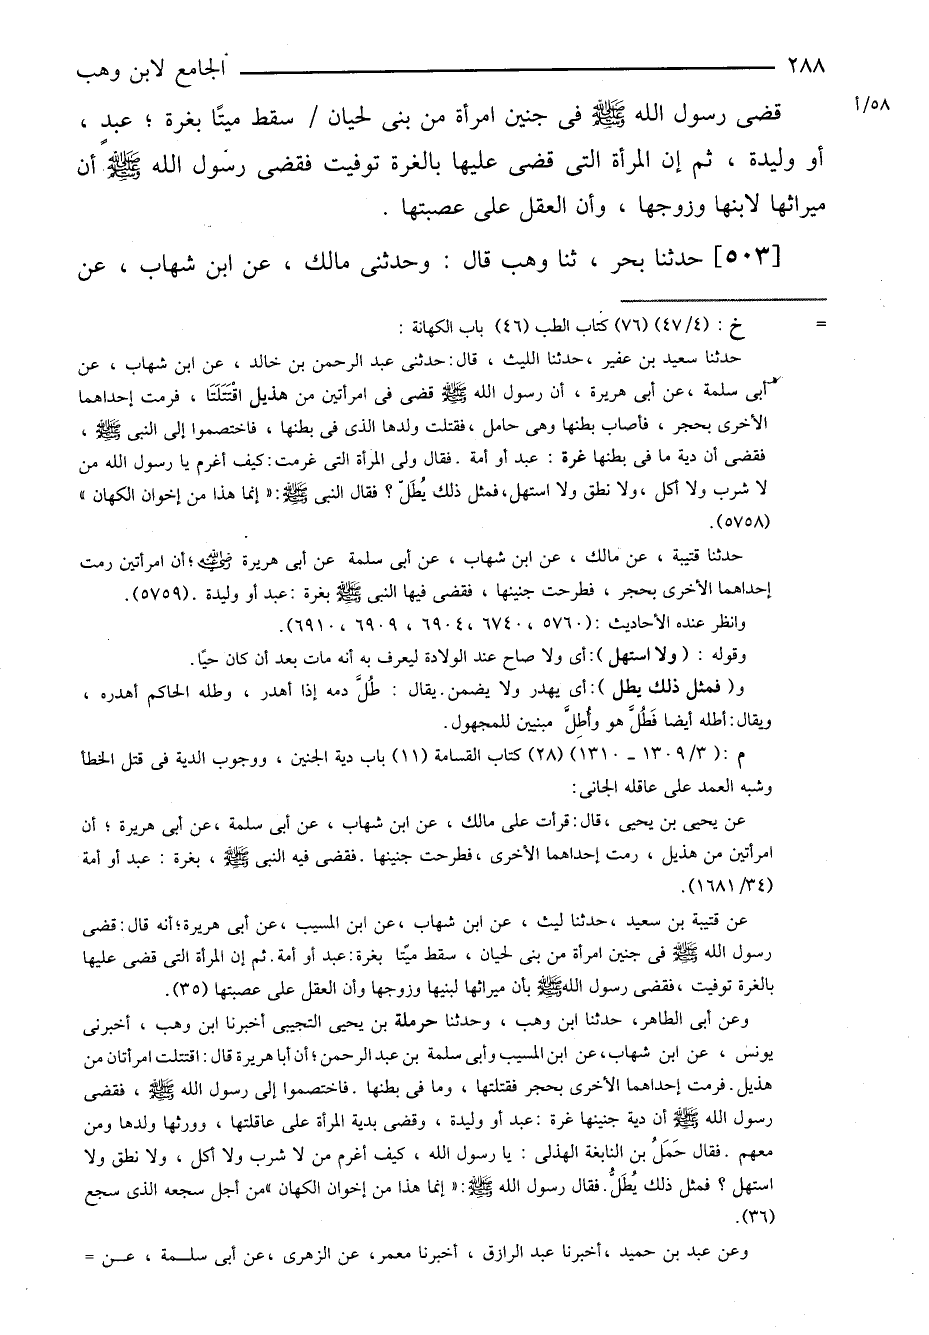 ٢٨٨ الجامع لابن وهب
٥٨/أ
قضى رسول الله ﷺ فى جنين امرأة من بنى لحيان / سقط ميتًا بغرة ؛ عبدٍ ،
أو وليدة ، ثم إن المرأة التى قضى عليها بالغرة توفيت فقضى رسول الله ﷺ أن
ميراثها لابنها وزوجها ، وأن العقل على عصبتها .
[٥٠٣] حدثنا بحر ، ثنا وهب قال : وحدثنى مالك ، عن ابن شهاب ، عن
= خ : (٤/ ٤٧) (٧٦) كتاب الطب (٤٦) باب الكهانة :
حدثنا سعيد بن عفير ، حدثنا الليث ، قال : حدثنى عبد الرحمن بن خالد ، عن ابن شهاب ، عن
أبى سلمة ، عن أبى هريرة ، أن رسول الله ﷺ قضى فى امرأتين من هذيل اقْتَتَلَتَا ، فرمت إحداهما
الأخرى بحجر ، فأصاب بطنها وهى حامل ، فقتلت ولدها الذى فى بطنها ، فاختصموا إلى النبى ﷺ ،
فقضى أن دية ما فى بطنها غرة : عبد أو أمة . فقال ولى المرأة التى غرمت : كيف أغرم يا رسول الله من
لا شرب ولا أكل ، ولا نطق ولا استهل ، فمثل ذلك يُطَلّ ؟ فقال النبى ﷺ : « إنما هذا من إخوان الكهان »
(٥٧٥٨).
حدثنا قتيبة ، عن مالك ، عن ابن شهاب ، عن أبى سلمة عن أبى هريرة رضي الله عنه ؛ أن امرأتين رمت
إحداهما الأخرى بحجر ، فطرحت جنينها ، فقضى فيها النبى ﷺ بغرة : عبد أو وليدة . (٥٧٥٩).
وانظر عنده الأحاديث : (٥٧٦٠ ، ٦٧٤٠ ، ٦٩٠٤ ، ٦٩٠٩ ، ٦٩١٠).
وقوله : ( ولا استهل ) : أى ولا صاح عند الولادة ليعرف به أنه مات بعد أن كان حيًا.
و( فمثل ذلك يطل ) : أى يهدر ولا يضمن . يقال : طُلَّ دمه إذا أهدر ، وطله الحاكم أهدره ،
ويقال : أطله أيضا فَطُلَّ هو وأُطِلَّ مبنيين للمجهول .
م : (٣/ ١٣٠٩ ـ ١٣١٠) (٢٨) كتاب القسامة (١١) باب دية الجنين ، ووجوب الدية فى قتل الخطأ
وشبه العمد على عاقله الجانى :
عن يحيى بن يحيى ، قال : قرأت على مالك ، عن ابن شهاب ، عن أبى سلمة ، عن أبى هريرة ؛ أن
امرأتين من هذيل ، رمت إحداهما الأخرى ، فطرحت جنينها . فقضى فيه النبى ﷺ ، بغرة : عبد أو أمة
(٣٤/ ١٦٨١).
عن قتيبة بن سعيد ، حدثنا ليث ، عن ابن شهاب ، عن ابن المسيب ، عن أبى هريرة ؛ أنه قال : قضى
رسول الله ﷺ فى جنين امرأة من بنى لحيان ، سقط ميتًا بغرة : عبد أو أمة . ثم إن المرأة التى قضى عليها
بالغرة توفيت ، فقضى رسول الله ﷺ بأن ميراثها لبنيها وزوجها وأن العقل على عصبتها (٣٥).
وعن أبى الطاهر ، حدثنا ابن وهب ، وحدثنا حرملة بن يحيى التجيبى أخبرنا ابن وهب ، أخبرنى
يونس ، عن ابن شهاب ، عن ابن المسيب وأبى سلمة بن عبد الرحمن ؛ أن أبا هريرة قال : اقتتلت امرأتان من
هذيل . فرمت إحداهما الأخرى بحجر فقتلتها ، وما فى بطنها . فاختصموا إلى رسول الله ﷺ ، فقضى
رسول الله ﷺ أن دية جنينها غرة : عبد أو وليدة ، وقضى بدية المرأة على عاقلتها ، وورثها ولدها ومن
معهم . فقال حَمَلُ بن النابغة الهذلى : يا رسول الله ، كيف أغرم من لا شرب ولا أكل ، ولا نطق ولا
استهل ؟ فمثل ذلك يُطَلُّ . فقال رسول الله ﷺ : « إنما هذا من إخوان الكهان » من أجل سجعه الذى سجع
(٣٦).
وعن عبد بن حميد ، أخبرنا عبد الرازق ، أخبرنا معمر ، عن الزهرى ، عن أبى سلـمة ، عـن =